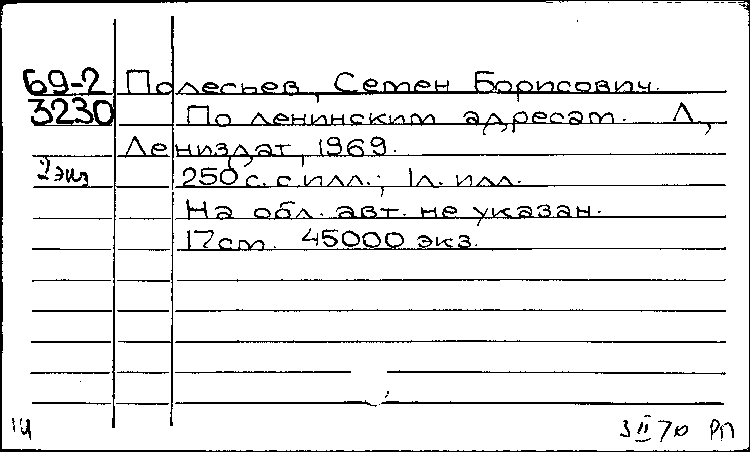 69-2 Полесьев, Семен Борисович.
3230 По ленинским адресам. Л.,
Лениздат, 1969.
2 экз 250 с. с илл.; 1 л. илл.
На обл. авт. не указан.
17 см. 45000 экз.
14 3 II 70 РП